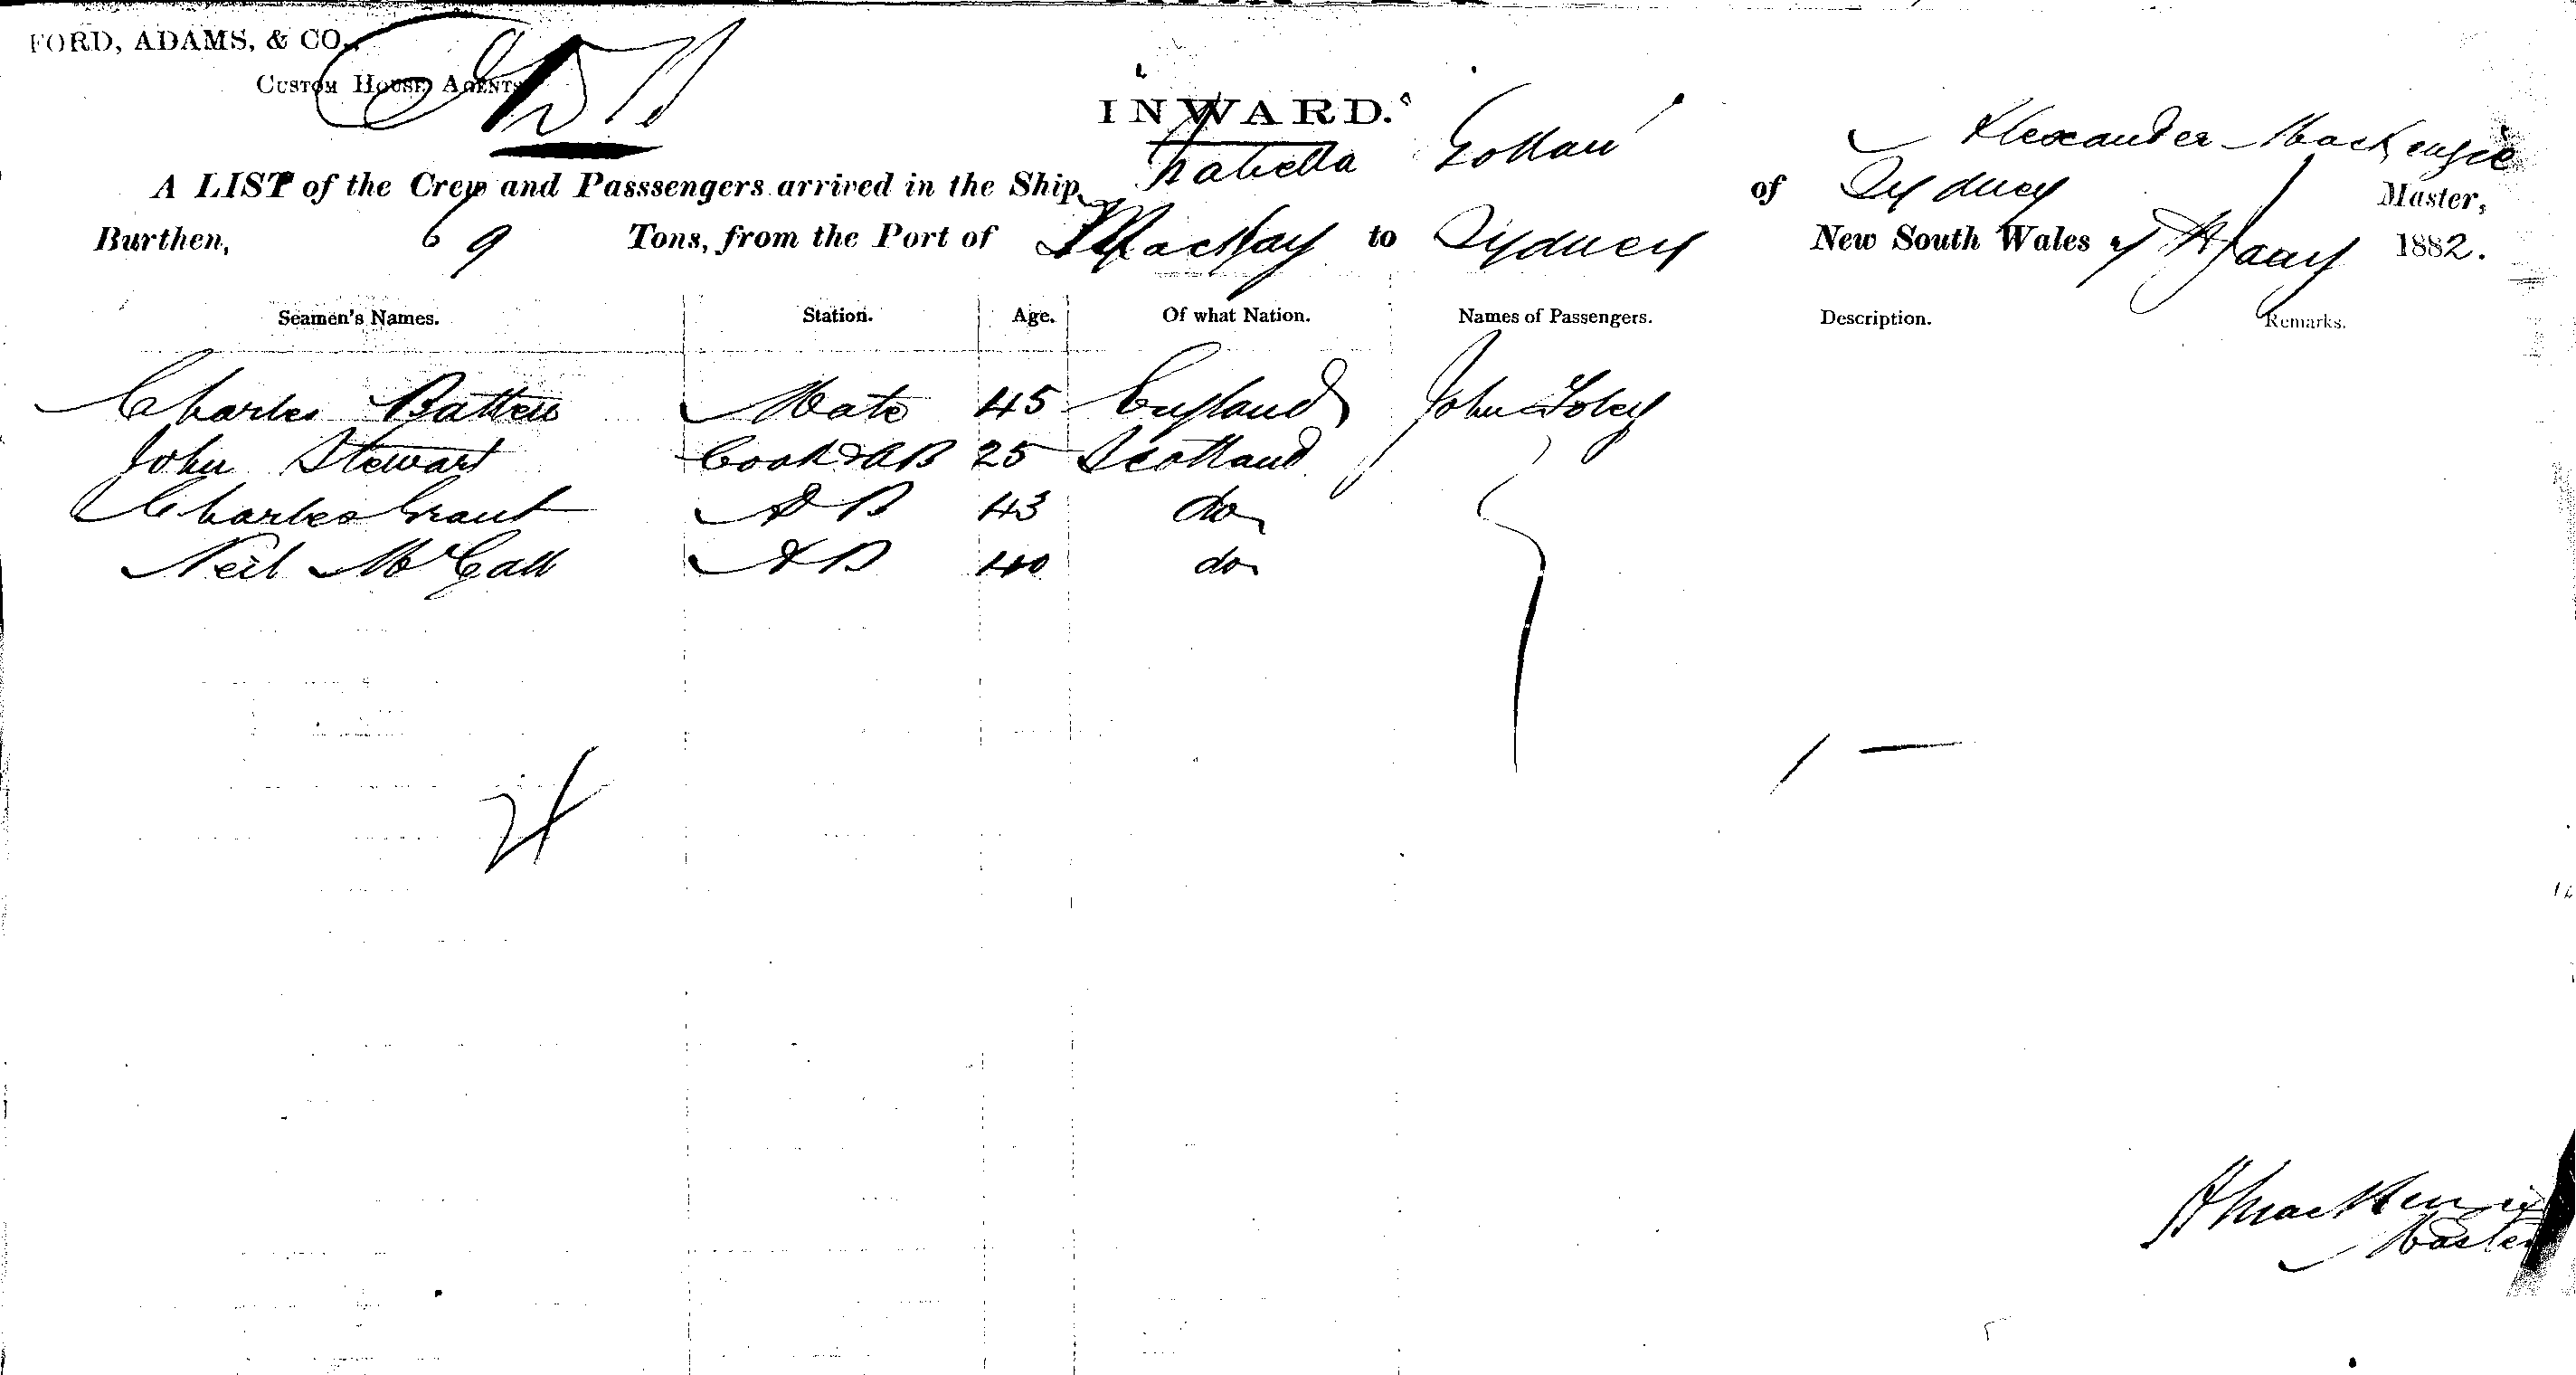 FORD, ADAMS, & CO.,
CUSTOM HOUSE AGENTS
INWARD.
Alexander MacKenzie
A LIST of the Crew and Passsengers arrived in the Ship Isabella Gollan of Sydney Master,
Burthen, 69 Tons, from the Port of MacKay to Sydney New South Wales Jany 1882.
Seamen's Names. Station. Age. Of what Nation. Names of Passengers. Description. Remarks.
Charles Batten Mate 45 England John Foley
John Stewart Cook & AB 25 Scotland
Charles Grant AB 43 do
Neil McCall AB 40 do
4
1
A MacKenzie
Master